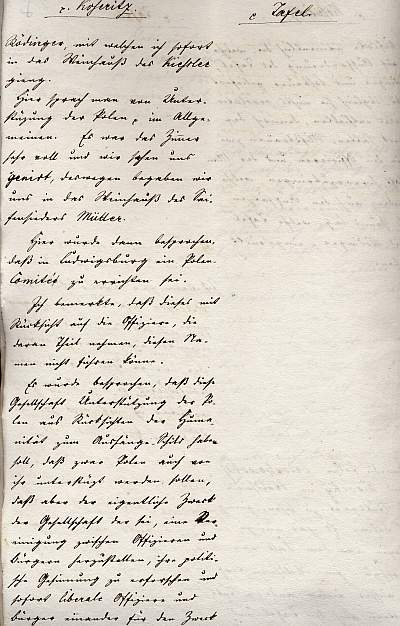 v. Koseritz.
c Tafel.
Rödinger, mit welchem ich sofort
in das Weinhauß des Kießler
gieng.
Hier sprach man von Unter-
stüzung der Polen, im Allge-
meinen. Es war das Zimer
sehr voll und wir sahen uns
genirt, deswegen begaben wir
uns in das Weinhauß des Sai-
fensieders Müller.
Hier wurde dann besprochen,
daß in Ludwigsburg ein Polen-
Comitée zu errichten sei.
Ich bemerkte, daß dieses mit
Rücksicht auf die Offiziere, die
daran Theil nehmen, diesen Na-
men nicht führen könne.
Es wurde besprochen, daß diese
Gesellschaft Unterstützung der Po-
len aus Rücksichten der Huma-
nität zum Aushänge-Schild haben
soll, daß zwar Polen auch von
ihr unterstüzt werden sollen,
daß aber der eigentliche Zweck
der Gesellschaft der sei, eine Ver-
einigung zwischen Offizieren und
Bürgern herzustellen, ihre politi-
sche Gesinnung zu erforschen und
sofort liberale Offiziere und
Bürger einander für den Zweck